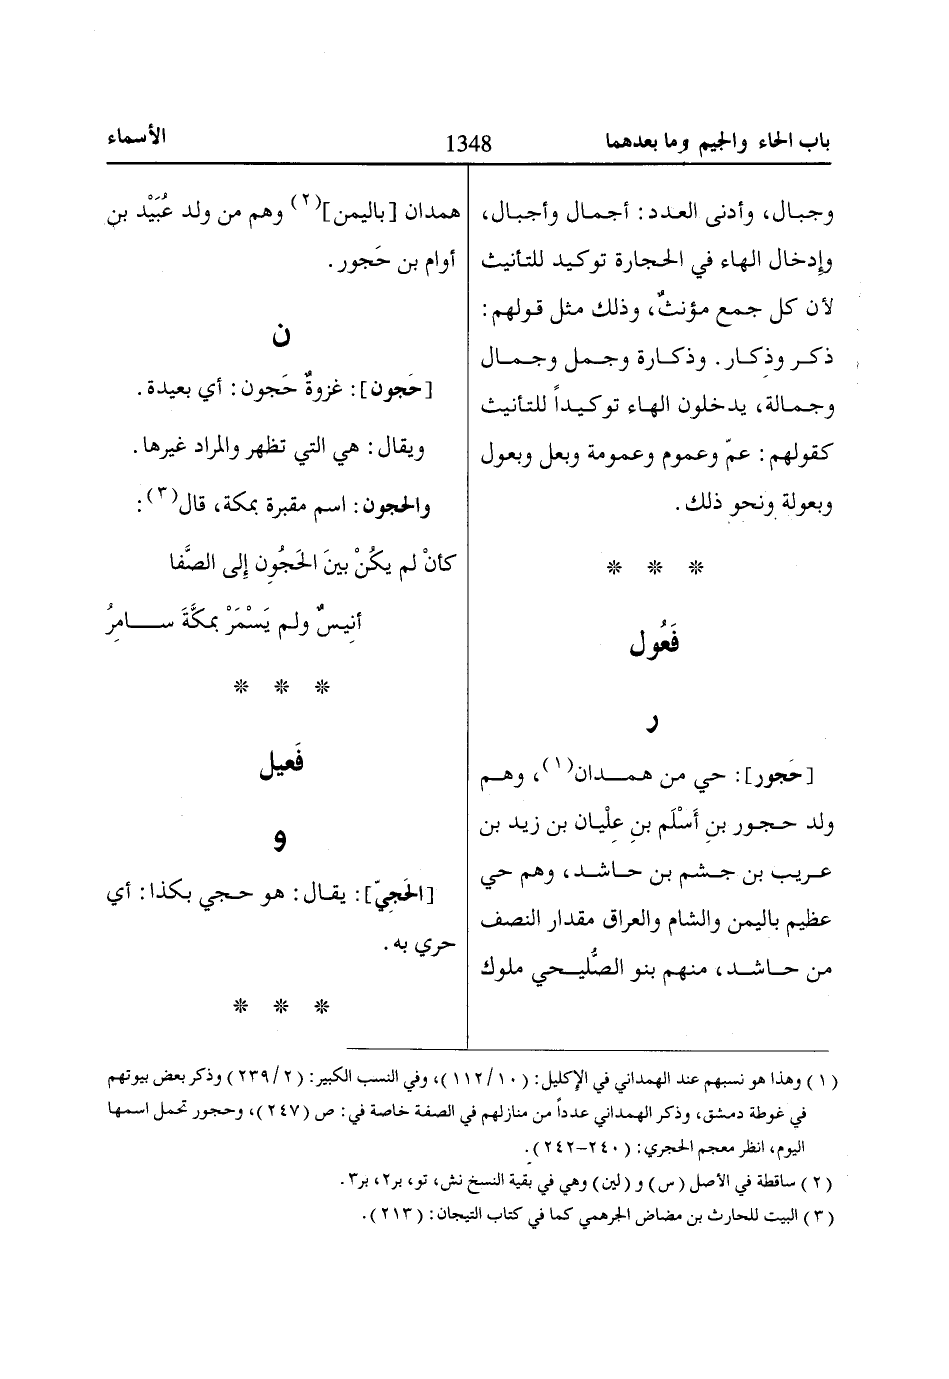 باب الحاء والجيم وما بعدهما
1348
الأسماء
وجبال، وأدنى العدد: أجمال وأجبال،
وإدخال الهاء في الحجارة توكيد للتأنيث
لأن كل جمع مؤنثٌ، وذلك مثل قولهم:
ذكر وذكار. وذكارة وجمل وجمال
وجمالة، يدخلون الهاء توكيداً للتأنيث
كقولهم: عمّ وعموم وعمومة وبعل وبعول
وبعولة ونحو ذلك.
* * *
فَعُول
ر
[حَجور]: حي من همدان(١)، وهم
ولد حجور بنِ أَسْلَم بنِ عِلْيان بن زيد بن
عريب بن جشم بن حاشد، وهم حي
عظيم باليمن والشام والعراق مقدار النصف
من حاشد، منهم بنو الصُّليحي ملوك
همدان [باليمن](٢) وهم من ولد عُبَيْد بنِ
أوام بن حَجور.
ن
[حَجون]: غزوةٌ حَجون: أي بعيدة.
ويقال: هي التي تظهر والمراد غيرها.
والحجون: اسم مقبرة بمكة، قال(٣):
كأنْ لم يكُنْ بينَ الحَجُونِ إلى الصَّفا
أنِيسٌ ولم يَسْمَرْ بمكَّةَ سامِرُ
* * *
فَعيل
و
[الحَجِيّ]: يقال: هو حجي بكذا: أي
حري به.
* * *
(١) وهذا هو نسبهم عند الهمداني في الإكليل: (١١٢/١٠)، وفي النسب الكبير: (٢٣٩/٢) وذكر بعض بيوتهم
في غوطة دمشق، وذكر الهمداني عدداً من منازلهم في الصفة خاصة في: ص (٢٤٧)، وحجور تحمل اسمها
اليوم، انظر معجم الحجري: (٢٤٠-٢٤٢).
(٢) ساقطة في الأصل (س) و (لين) وهي في بقية النسخ نش، تو، بر٢، بر٣.
(٣) البيت للحارث بن مضاض الجرهمي كما في كتاب التيجان: (٢١٣).